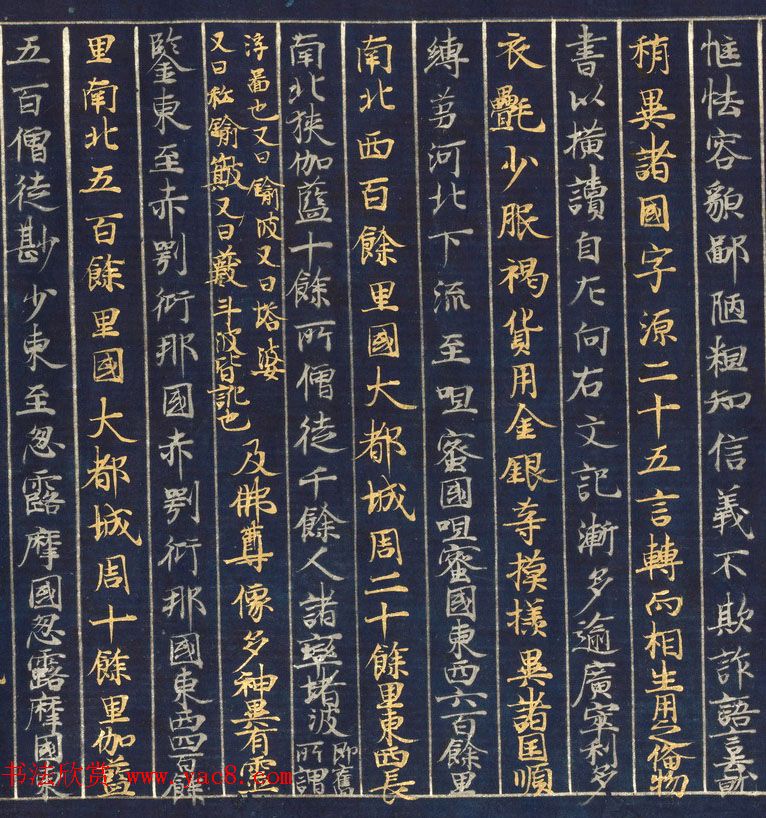 恇怯容貌鄙陋粗知信義不欺詐語言去就
稍異諸國字源二十五言轉而相生用之俻物
書以橫讀自左向右文記漸多逾廣窣利多
衣㲲少服褐貨用金銀等摸㨾異諸国順
縛芻河北下流至呾蜜國呾蜜國東西六百餘里
南北四百餘里國大都城周二十餘里東西長
南北狹伽藍十餘所僧徒千餘人諸窣堵波 即舊所謂
浮啚也又曰鍮婆又曰塔婆
又曰私鍮簸又曰藪斗波皆訛也
及佛尊像多神異有靈
鑒東至赤㓵衍那國赤㓵衍那國東西四百餘
里南北五百餘里國大都城周十餘里伽藍
五百僧徒尠少東至忽露摩國忽露摩國東
书法欣赏 www.yac8.com